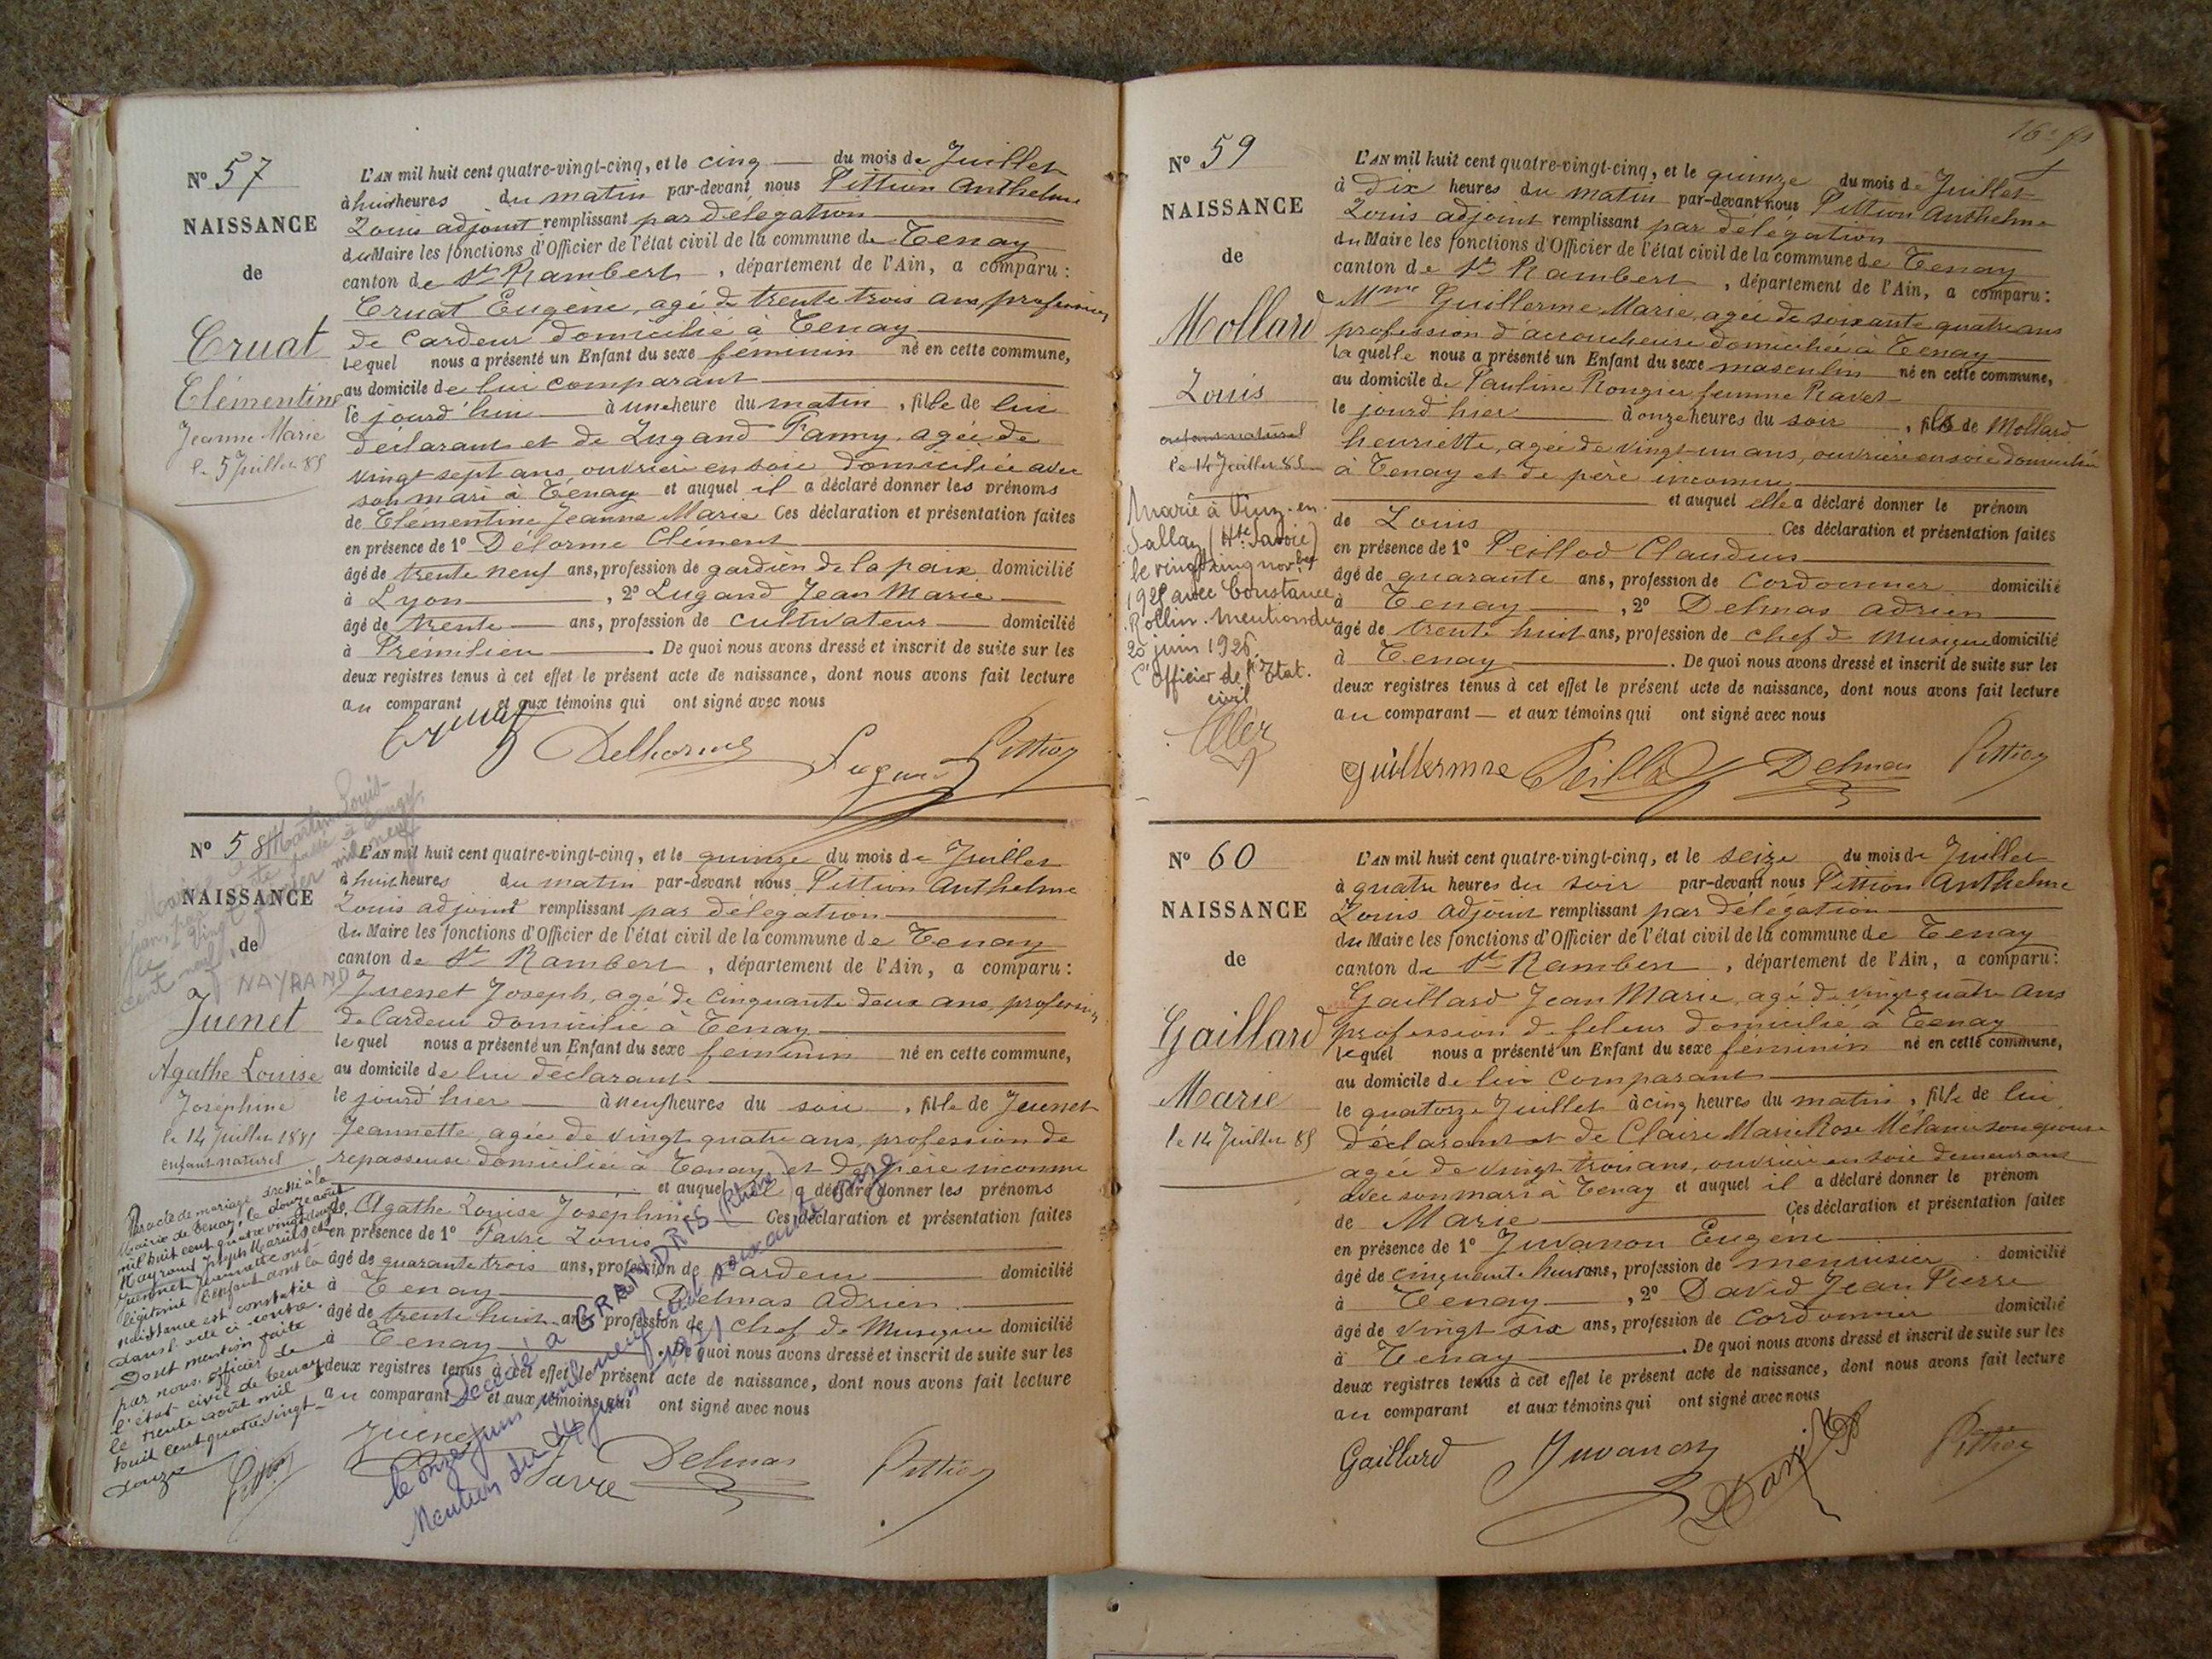 N° 57
NAISSANCE
de
Cruat
Clémentine
Jeanne Marie
le 5 Juillet 85
L'AN mil huit cent quatre-vingt-cinq, et le cinq du mois de Juillet
à huit heures du matin par-devant nous Pittion Anthelme
Louis adjoint remplissant par délégation
du Maire les fonctions d'Officier de l'état civil de la commune de Tenay
canton de St Rambert, département de l'Ain, a comparu :
Cruat Eugène, agé de trente trois ans, profession
de Cardeur domicilié à Tenay
lequel nous a présenté un Enfant du sexe féminin né en cette commune,
au domicile de lui comparant
le jourd'hui à une heure du matin, fille de lui
déclarant et de Lugand Fanny, agée de
vingt sept ans ouvrière en soie domiciliée avec
son mari à Tenay et auquel il a déclaré donner les prénoms
de Clémentine Jeanne Marie Ces déclaration et présentation faites
en présence de 1° Délorme Clément
âgé de trente neuf ans, profession de gardien de la paix domicilié
à Lyon, 2° Lugand Jean Marie
âgé de trente ans, profession de cultivateur domicilié
à Prémilieu. De quoi nous avons dressé et inscrit de suite sur les
deux registres tenus à cet effet le présent acte de naissance, dont nous avons fait lecture
au comparant et aux témoins qui ont signé avec nous
Cruat Delhorme Lugand Pittion
N° 58
NAISSANCE
de
NAYRAND
Juenet
Agathe Louise
Joséphine
le 14 Juillet 1885
enfant naturel
Par acte de mariage dressé à la
Mairie de Tenay, le douze août
mil huit cent quatre vingt douze,
Nayrand Joseph Marius et
Juennet Jeannette ont
légitimé l'enfant dont la
naissance est constatée
dans l'acte ci-contre.
Dont mention faite
par nous officier de
l'état-civil de Tenay
le trente août mil
huit cent quatre vingt-
douze
Pittion
L'AN mil huit cent quatre-vingt-cinq, et le quinze du mois de Juillet
à huit heures du matin par-devant nous Pittion Anthelme
Louis adjoint remplissant par délégation
du Maire les fonctions d'Officier de l'état civil de la commune de Tenay
canton de St Rambert, département de l'Ain, a comparu :
Juenet Joseph, agé de Cinquante deux ans, profession
de Cardeur domicilié à Tenay
lequel nous a présenté un Enfant du sexe féminin né en cette commune,
au domicile de lui déclarant
le jourd'hier à neuf heures du soir, fille de Juenet
Jeannette, agée de vingt quatre ans, profession de
repasseuse domiciliée à Tenay et de père inconnu
et auquel il a déclaré donner les prénoms
de Agathe Louise Joséphine Ces déclaration et présentation faites
en présence de 1° Favre Louis
âgé de quarante trois ans, profession de Cardeur domicilié
à Tenay Delmas Adrien
âgé de trente huit ans, profession de chef de Musique domicilié
à Tenay. De quoi nous avons dressé et inscrit de suite sur les
deux registres tenus à cet effet le présent acte de naissance, dont nous avons fait lecture
au comparant et aux témoins qui ont signé avec nous
Juenet Favre Delmas Pittion
Décédée à GRANDRIS (Rhône)
le onze juin mil neuf cent soixante onze
Mention du 14 juin 1971
N° 59
NAISSANCE
de
Mollard
Louis
enfant naturel
le 14 Juillet 85
Marié à Viuz-en-
Sallaz (Hte Savoie)
le vingt cinq novbre
avec Constance
Rollin. mention du
25 juin
L'officier de l'Etat.
civil
16e
L'AN mil huit cent quatre-vingt-cinq, et le quinze du mois de Juillet
à dix heures du matin par-devant nous Pittion Anthelme
Louis adjoint remplissant par délégation
du Maire les fonctions d'Officier de l'état civil de la commune de Tenay
canton de St Rambert, département de l'Ain, a comparu :
Mme Guillerme Marie, agée de soixante quatre ans
profession d'accoucheuse domiciliée à Tenay
laquelle nous a présenté un Enfant du sexe masculin né en cette commune,
au domicile de Pauline Rongier femme Ravet
le jourd'hier à onze heures du soir, fils de Mollard
henriette, agée de vingt-un ans, ouvrière en soie domiciliée
à Tenay et de père inconnu
et auquel elle a déclaré donner le prénom
de Louis Ces déclaration et présentation faites
en présence de 1° Peillod Claudius
âgé de quarante ans, profession de Cordonnier domicilié
à Tenay, 2° Delmas Adrien
âgé de trente huit ans, profession de chef de Musique domicilié
à Tenay. De quoi nous avons dressé et inscrit de suite sur les
deux registres tenus à cet effet le présent acte de naissance, dont nous avons fait lecture
au comparant et aux témoins qui ont signé avec nous
Guillermne Peillod Delmas Pittion
N° 60
NAISSANCE
de
Gaillard
Marie
le 14 Juillet 85
L'AN mil huit cent quatre-vingt-cinq, et le seize du mois de Juillet
à quatre heures du soir par-devant nous Pittion Anthelme
Louis adjoint remplissant par délégation
du Maire les fonctions d'Officier de l'état civil de la commune de Tenay
canton de St Rambert, département de l'Ain, a comparu :
Gaillard Jean Marie, agé de vingt quatre ans
profession de fileur domicilié à Tenay
lequel nous a présenté un Enfant du sexe féminin né en cette commune,
au domicile de lui comparant
le quatorze Juillet à cinq heures du matin, fille de lui
déclarant et de Claire Marie Rose Mélanie son épouse
agée de vingt trois ans, ouvrière en soie demeurant
avec son mari à Tenay et auquel il a déclaré donner le prénom
de Marie Ces déclaration et présentation faites
en présence de 1° Juvanon Eugène
âgé de cinquante huit ans, profession de menuisier domicilié
à Tenay, 2° David Jean Pierre
âgé de vingt six ans, profession de Cordonnier domicilié
à Tenay. De quoi nous avons dressé et inscrit de suite sur les
deux registres tenus à cet effet le présent acte de naissance, dont nous avons fait lecture
au comparant et aux témoins qui ont signé avec nous
Gaillard Juvanon David Pittion